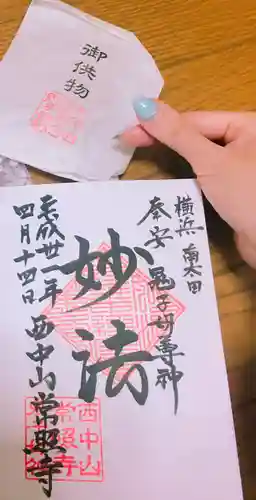 御供物
横浜 南太田
奉安 鬼子母尊神
妙法
平成卅一年
四月十四日
西中山 常照寺
西中山
常照寺